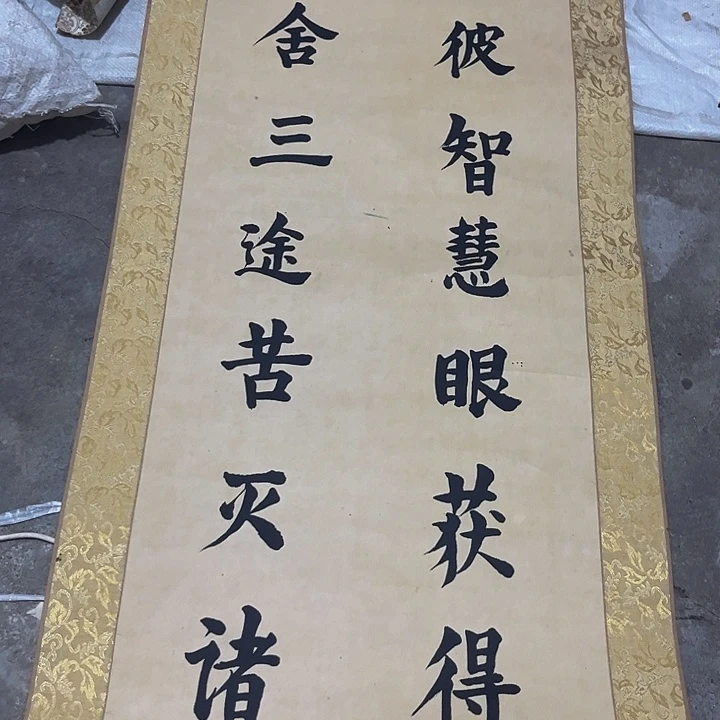 彼智慧眼获得
舍三途苦灭诸